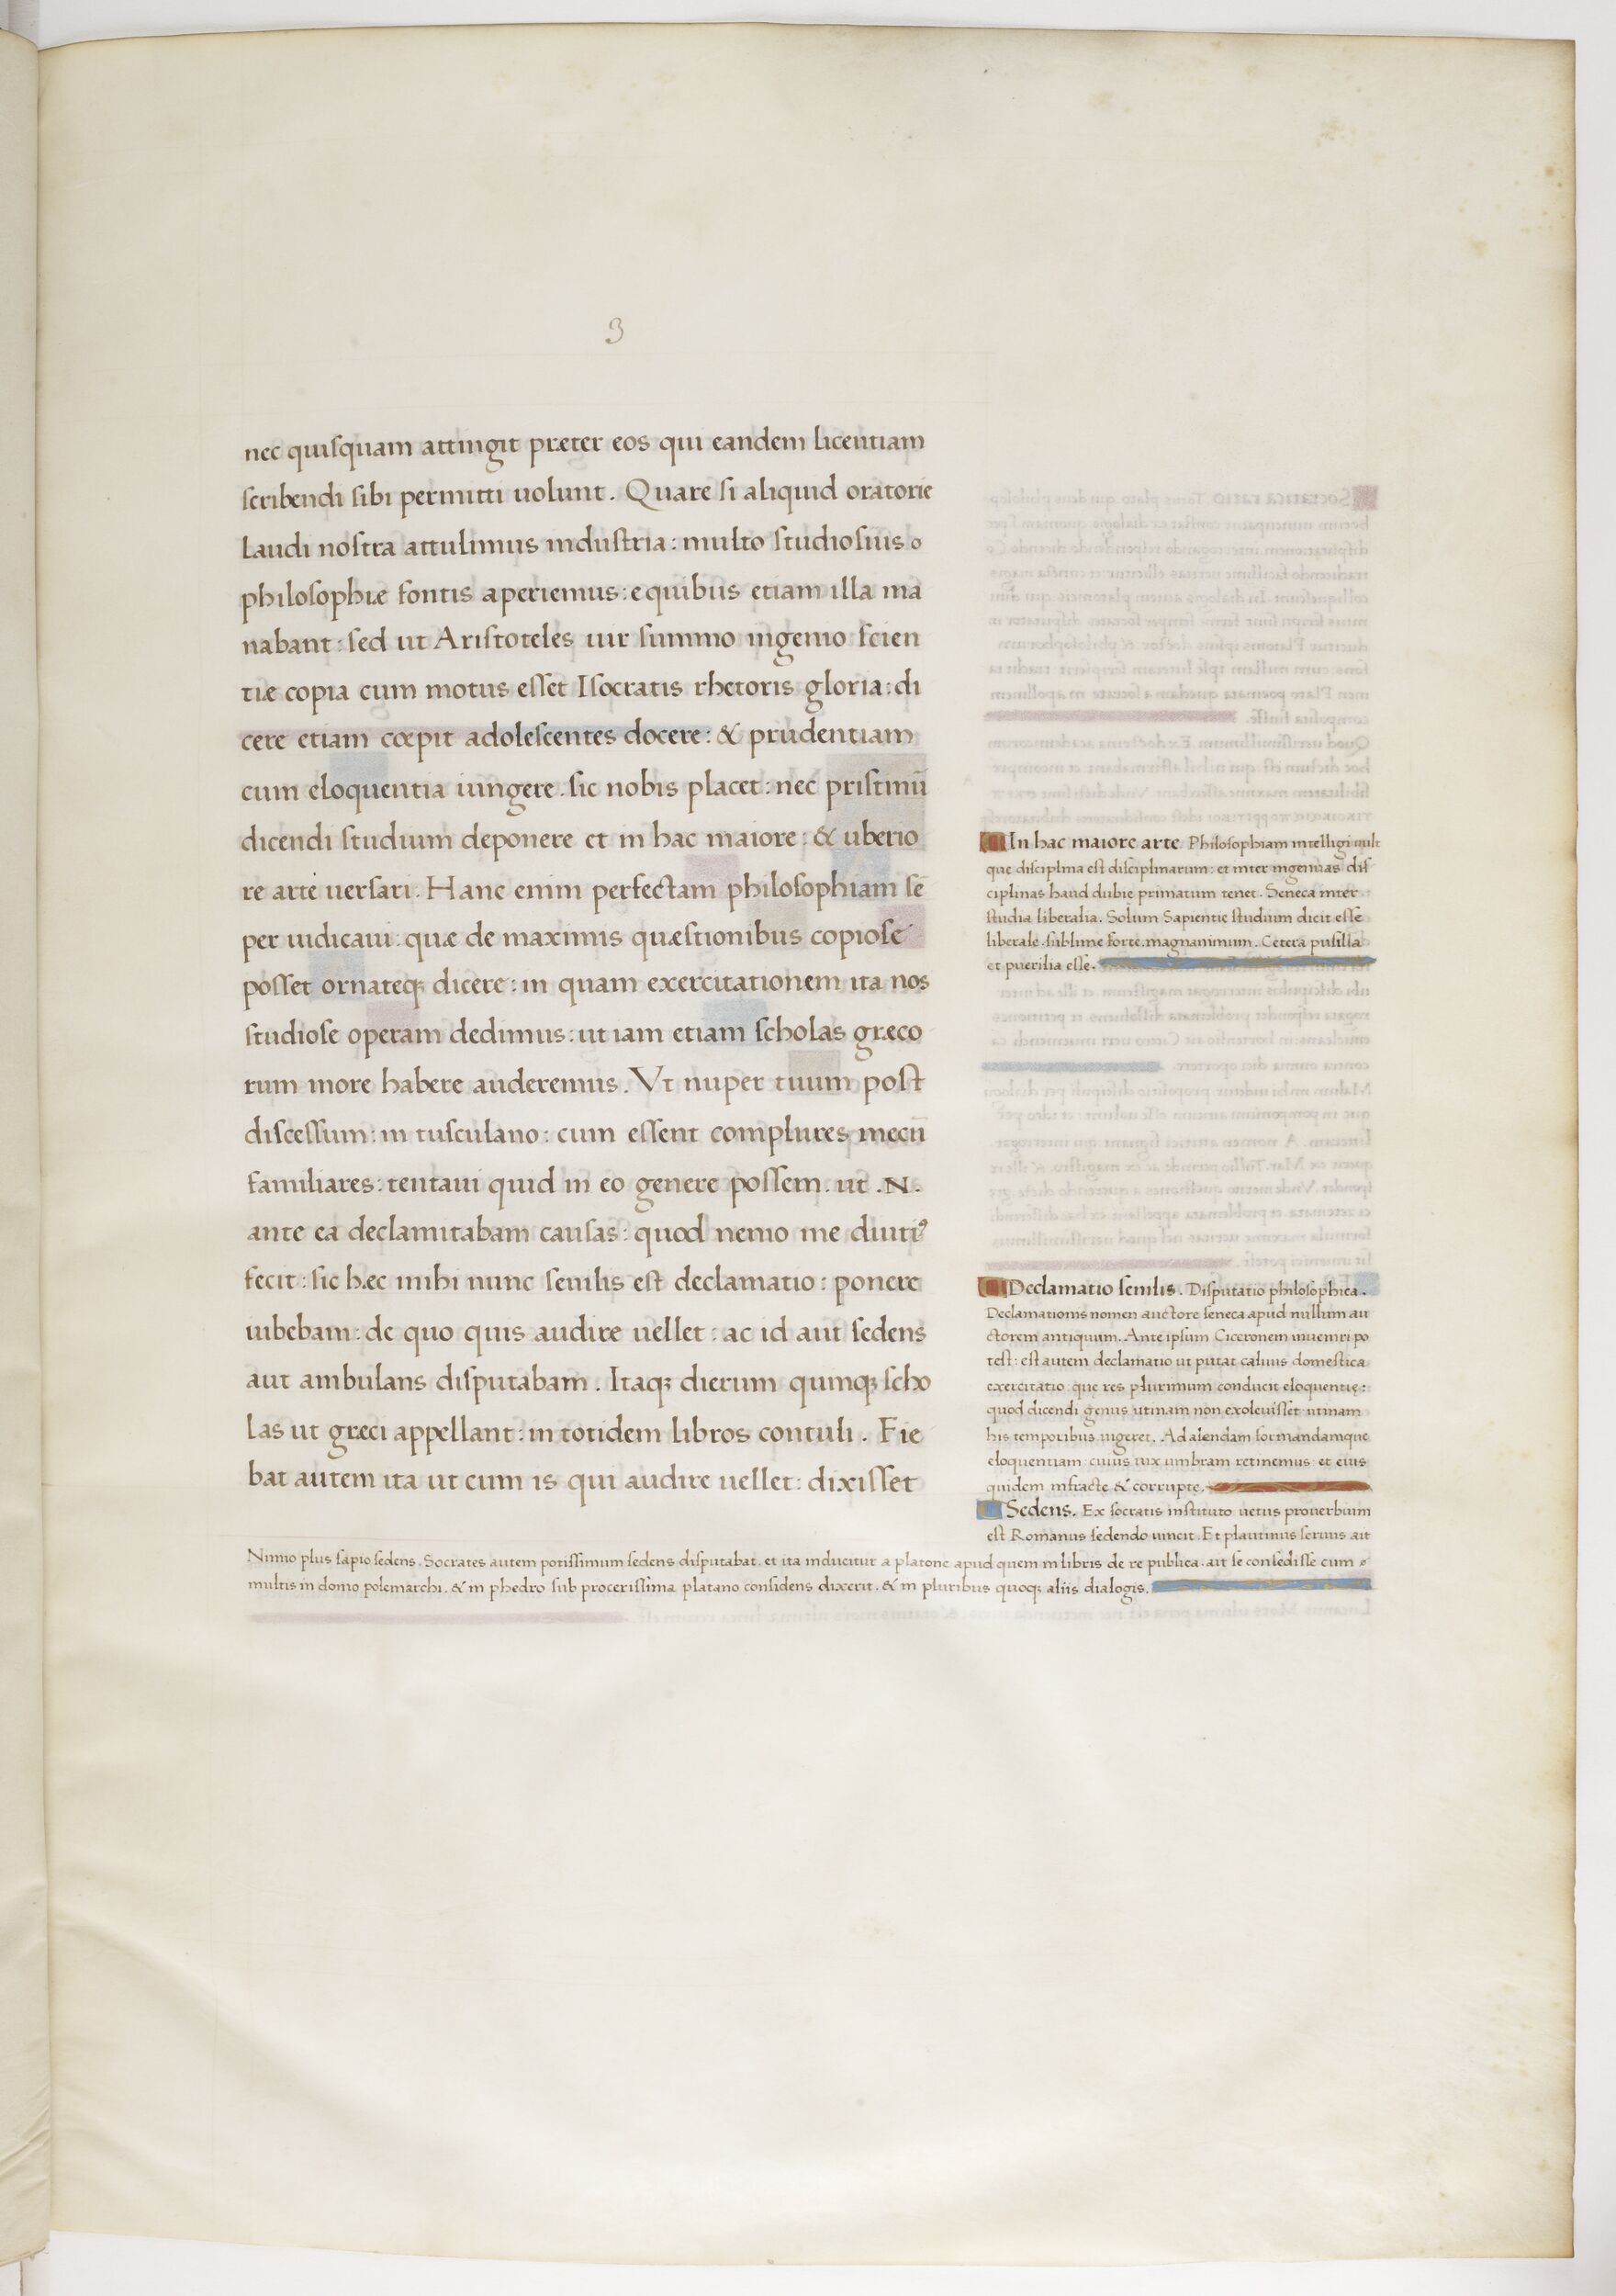 3
nec quiſquam attingit præter eos qui eandem licentiam
ſcribendi ſibi permitti uolunt. Quare ſi aliquid oratorie
laudi noſtra attulimus induſtria: multo ſtudioſius
philoſophiæ fontis aperiemus: e quibus etiam illa ma
nabant: ſed ut Ariſtoteles uir ſummo ingenio ſcien
tiæ copia cum motus eſſet Iſocratis rhetoris gloria: di
cere etiam cœpit adoleſcentes docere: & prudentiam
cum eloquentia iungere. ſic nobis placet: nec priſtinū
dicendi ſtudium deponere et in hac maiore: & uberio
re arte uerſari. Hanc enim perfectam philoſophiam ſē
per iudicaui: quæ de maximis quæſtionibus copioſe
poſſet ornateq; dicere: in quam exercitationem ita nos
ſtudioſe operam dedimus: ut iam etiam ſcholas græco
rum more habere auderemus. Vt nuper tuum poſt
diſceſſum: in tuſculano: cum eſſent complures mecū
familiares: tentaui quid in eo genere poſſem. ut .N.
ante ea declamitabam cauſas: quod nemo me diuti⁹
fecit: ſic hæc mihi nunc ſenilis eſt declamatio: ponere
iubebam: de quo quis audire uellet: ac id aut ſedens
aut ambulans diſputabam. Itaq; dierum quinq; ſcho
las ut græci appellant: in totidem libros contuli. Fie
bat autem ita ut cum is qui audire uellet: dixiſſet
In hac maiore arte Philoſophiam intelligi uult
que diſciplina eſt diſciplinarum: et inter ingenuas diſ
ciplinas haud dubie primatum tenet. Seneca inter
ſtudia liberalia. Solum Sapientie ſtudium dicit eſſe
liberale. ſublime forte. magnanimum. Cetera puſilla
et puerilia eſſe.
Declamatio ſenilis. Diſputatio philoſophica.
Declamationis nomen auctore ſeneca apud nullum au
ctorem antiquum. Ante ipſum Ciceronem inueniri po
teſt: eſt autem declamatio ut putat caluus domeſtica
exercitatio que res plurimum conducit eloquentię:
quod dicendi genus utinam non exoleuiſſet utinam
his temporibus uigeret. Ad alendam formandamque
eloquentiam: cuius uix umbram retinemus: et eius
quidem infracte & corrupte.
Sedens. Ex ſocratis inſtituto uetus prouerbium
eſt Romanus ſedendo uincit. Et plautinus ſeruus ait
Nimio plus ſapio ſedens. Socrates autem potiſſimum ſedens diſputabat. et ita inducitur a platone apud quem in libris de re publica. ait ſe conſediſſe cum
multis in domo polemarchi. & in phedro ſub proceriſſima platano conſidens dixerit. & in pluribus quoq; aliis dialogis.